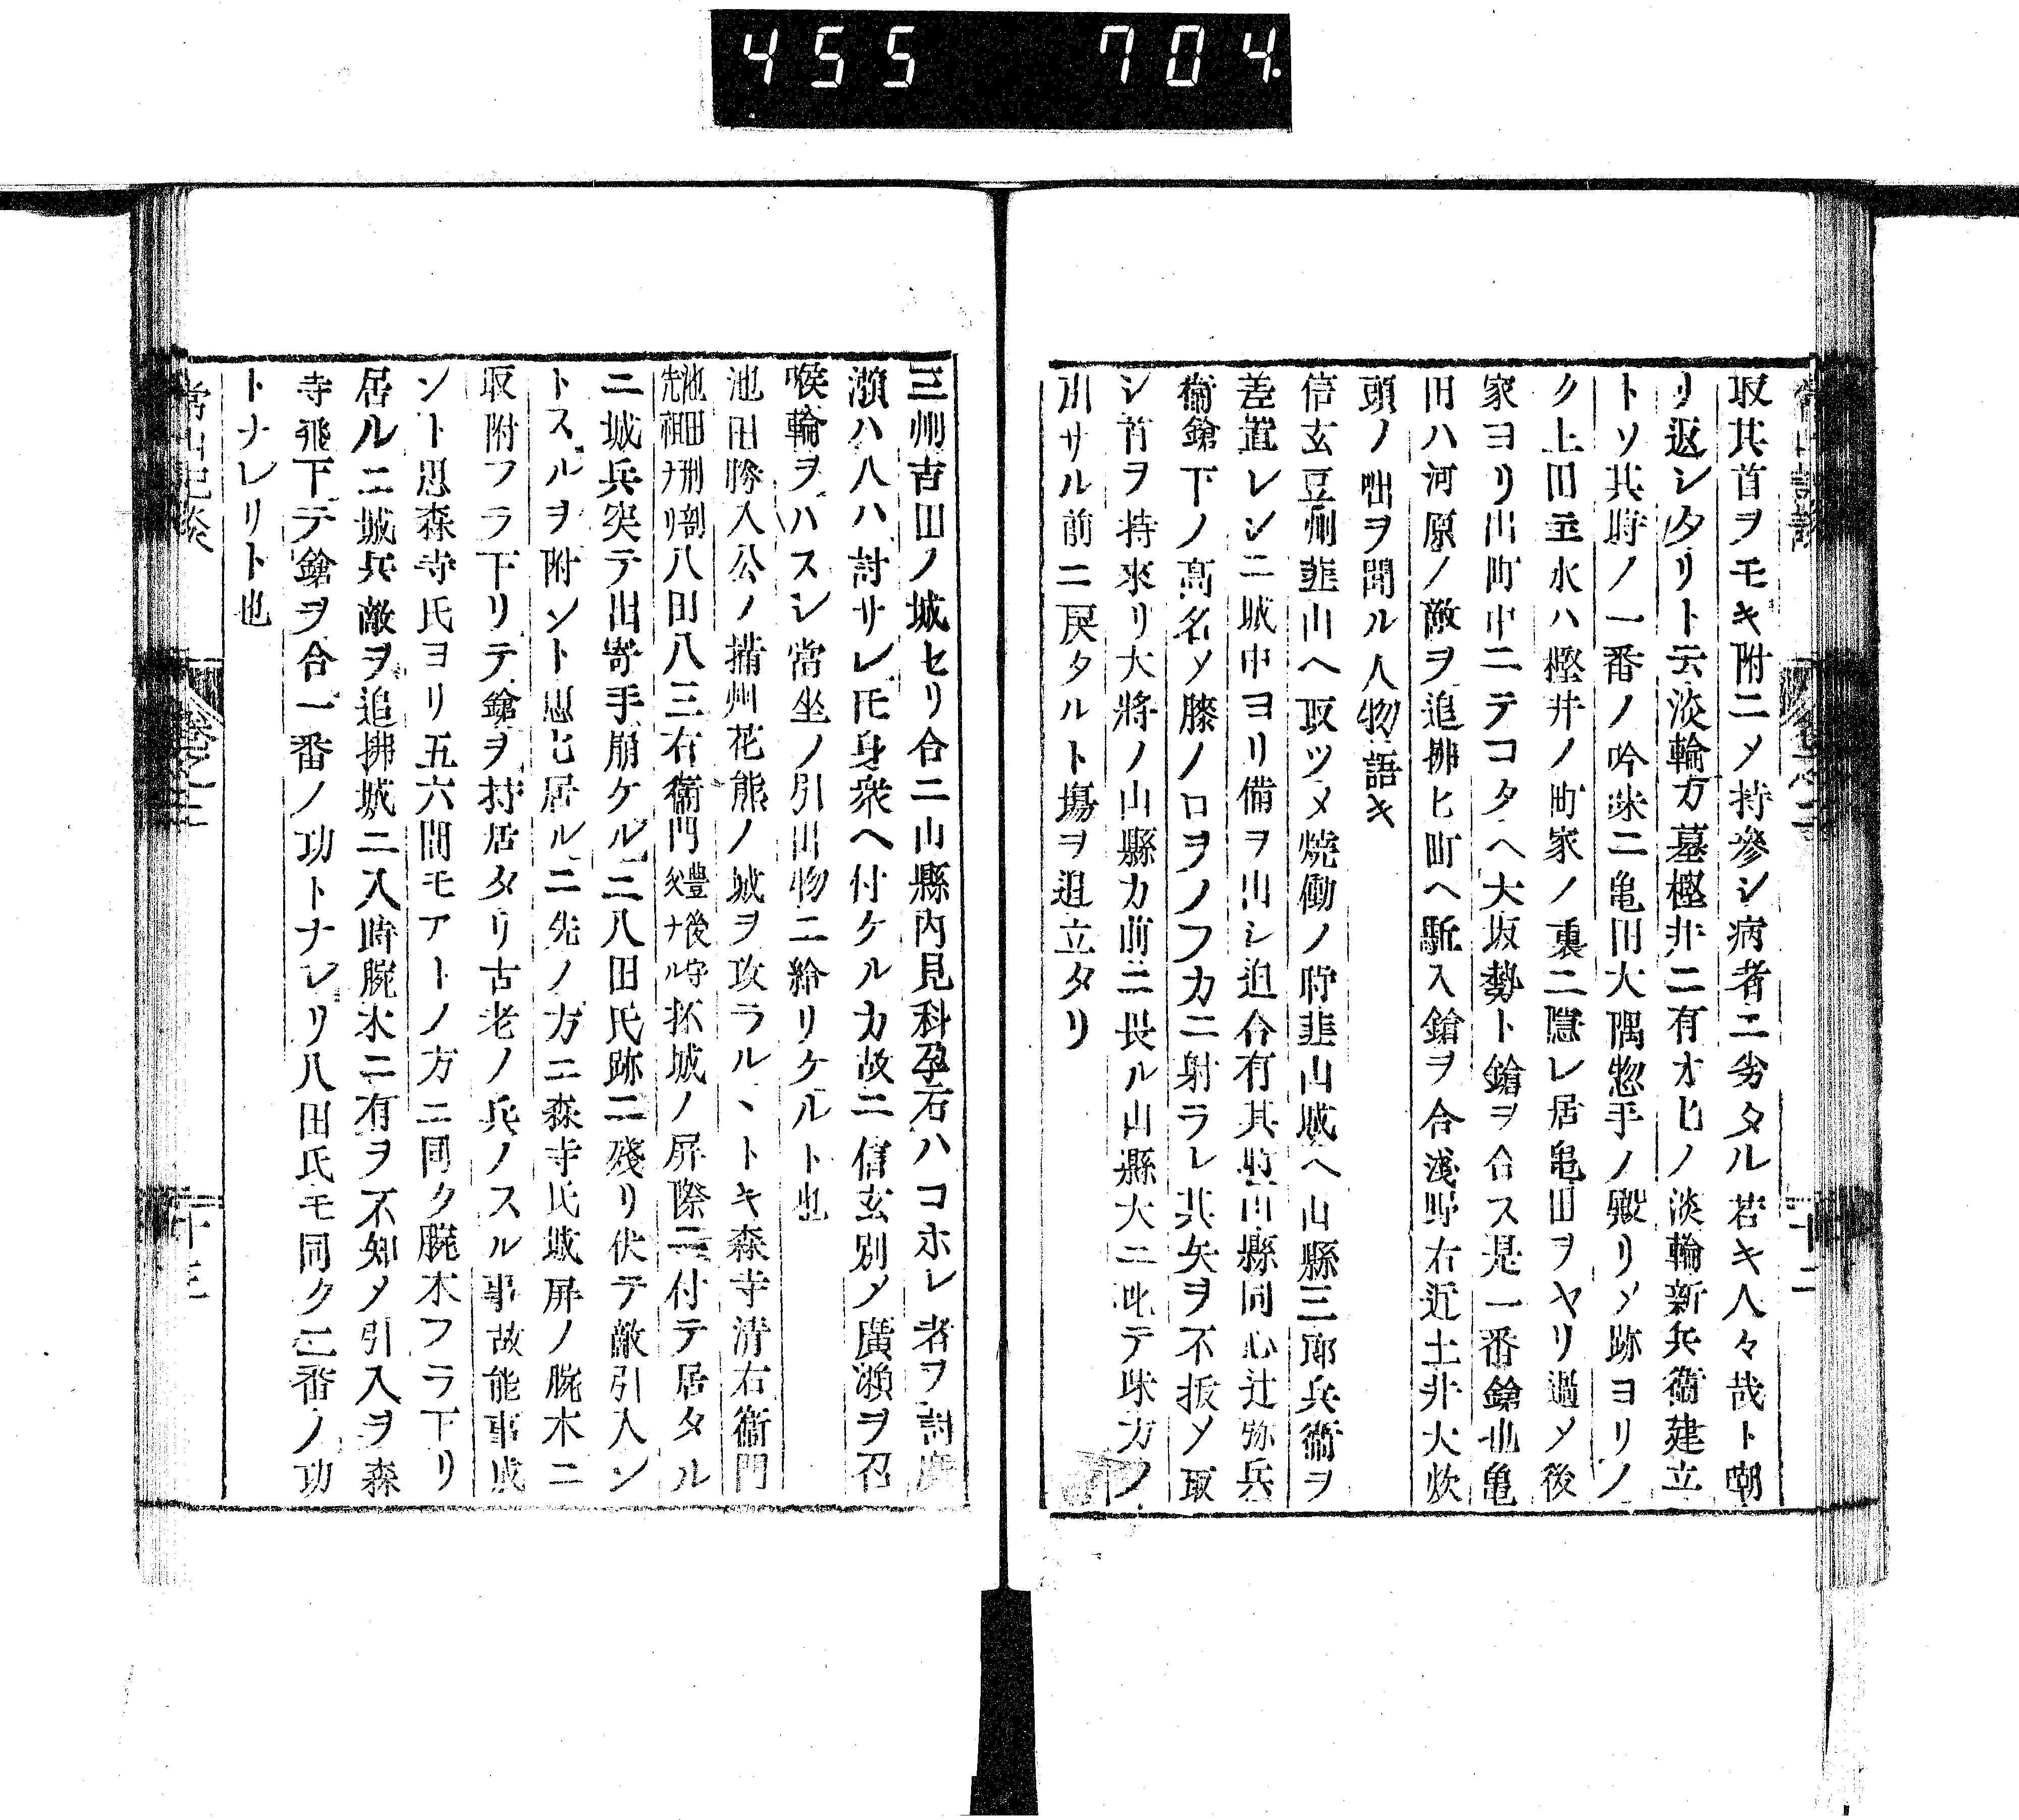 455 704.
取其首ヲモキ附ニメ持參シ病者ニ劣タル若キ人々哉ト嘲
リ返シタリト云淡輪カ墓樫井ニ有オヒノ淡輪新兵衞建立
トソ其時ノ一番ノ吟味ニ亀田大隅惣手ノ殿リメ跡ヨリノ
ク上田主水ハ樫井ノ町家ノ裏ニ隱レ居亀田ヲヤリ過メ後
家ヨリ出町中ニテコタヘ大坂勢ト鎗ヲ合ス是一番鎗也亀
田ハ河原ノ敵ヲ追拂ヒ町ヘ駈入鎗ヲ合淺野右近土井大炊
頭ノ咄ヲ聞ル人物語キ
信玄豆州韮山ヘ取ツメ焼働ノ時韮山城ヘ山縣三郎兵衞ヲ
差置レシニ城中ヨリ備ヲ出シ迫合有其時山縣同心辻弥兵
衞鎗下ノ髙名メ膝ノ口ヲノフカニ射ラレ其矢ヲ不扳メ取
シ首ヲ持來リ大將ノ山縣カ前ニ畏ル山縣大ニ叱テ味方ノ
川サル前ニ戻タルト塲ヲ追立タリ
三州吉田ノ城セリ合ニ山縣内見科孕石ハコホレ者ヲ討廣
瀬ハ八ハ討サレ𪜈身衆ヘ付ケルカ故ニ信玄別メ廣瀬ヲ召
喉輪ヲハスシ當坐ノ引出物ニ給リケルト也
池田勝入公ノ攝州花熊ノ城ヲ攻ラル丶トキ森寺清右衞門
池田刑部先祖ナリ八田八三右衞門豊後守父ナル抔城ノ屏際ニ付テ居タル
ニ城兵突テ出寄手崩ケルニ八田氏跡ニ殘リ伏テ敵引入ン
トスルヲ附ント思ヒ居ルニ先ノ方ニ森寺氏城屏ノ腕木ニ
取附フラ下リテ鎗ヲ持居タリ古老ノ兵ノスル事故能事成
ント思森寺氏ヨリ五六間モアトノ方ニ同ク腕木フラ下リ
居ルニ城兵敵ヲ追拂城ニ入時腕木ニ有ヲ不知メ引入ヲ森
寺飛下テ鎗ヲ合一番ノ功トナレリ八田氏モ同ク二番ノ功
トナレリト也
常山紀談 卷之二 十三